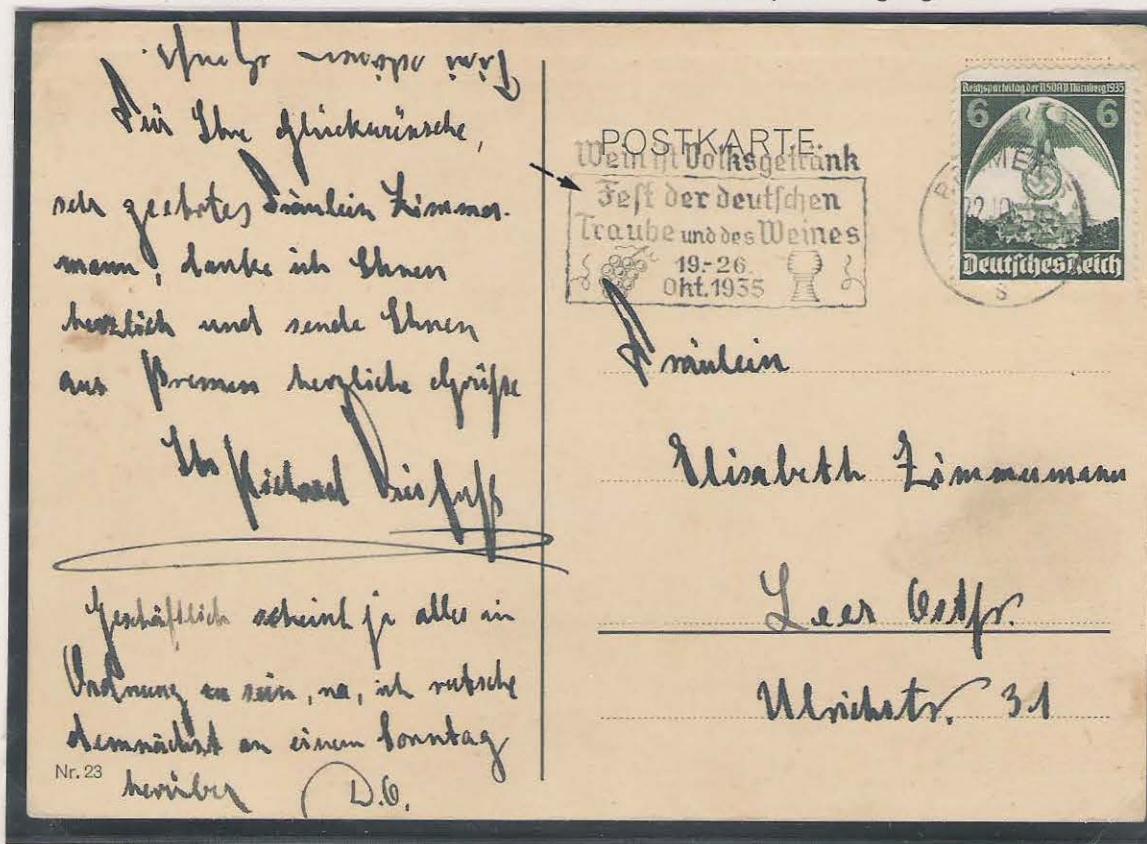 Für Ihre Glückwünsche,
sehr geehrtes Fräulein Zimmer-
mann, danke ich Ihnen
herzlich und sende Ihnen
aus Bremen herzliche Grüße
Ihr Richard
Geschäftlich scheint ja alles in
Ordnung zu sein, na, ich rutsche
demnächst an einem Sonntag
herüber D.O.
Nr. 23
POSTKARTE
Wein ist Volksgetränk
Fest der deutschen
Traube und des Weines
19.-26.
Okt. 1935
Reichsparteitag der NSDAP Nürnberg 1935
6 6
Deutsches Reich
BREMEN
22.10
s
Fräulein
Elisabeth Zimmermann
Leer Ostfr.
Ulrichstr. 31